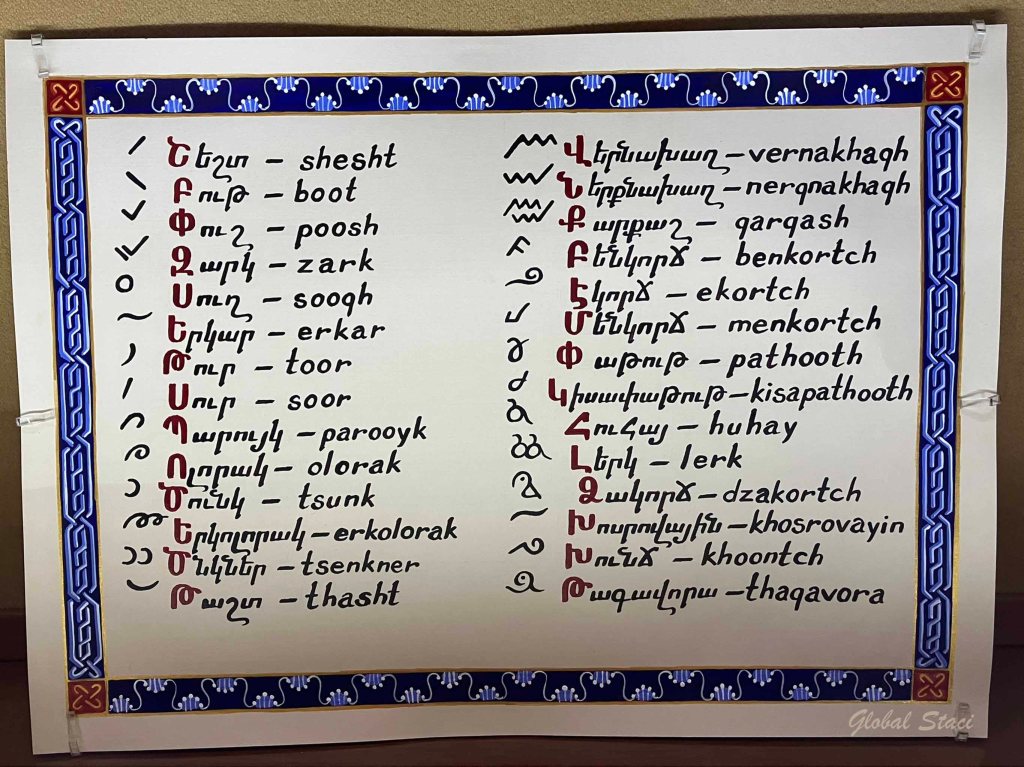 Շեշտ – shesht
Բութ – boot
Փուշ – poosh
Զարկ – zark
Սուղ – soogh
Երկար – erkar
Թուր – toor
Սուր – soor
Պարույկ – parooyk
Ոլորակ – olorak
Ծունկ – tsunk
Երկոլորակ – erkolorak
Ծնկներ – tsenkner
Թաշտ – thasht
Վերնախաղ – vernakhagh
Ներքնախաղ – nerqnakhagh
Քարքաշ – qarqash
Բենկորճ – benkortch
Էկորճ – ekortch
Մենկորճ – menkortch
Փաթութ – pathooth
Կիսափաթութ – kisapathooth
Հուհայ – huhay
Լերկ – lerk
Ձակորճ – dzakortch
Խոսրովային – khosrovayin
Խունճ – khoontch
Թագավորա – thagavora
Global Staci